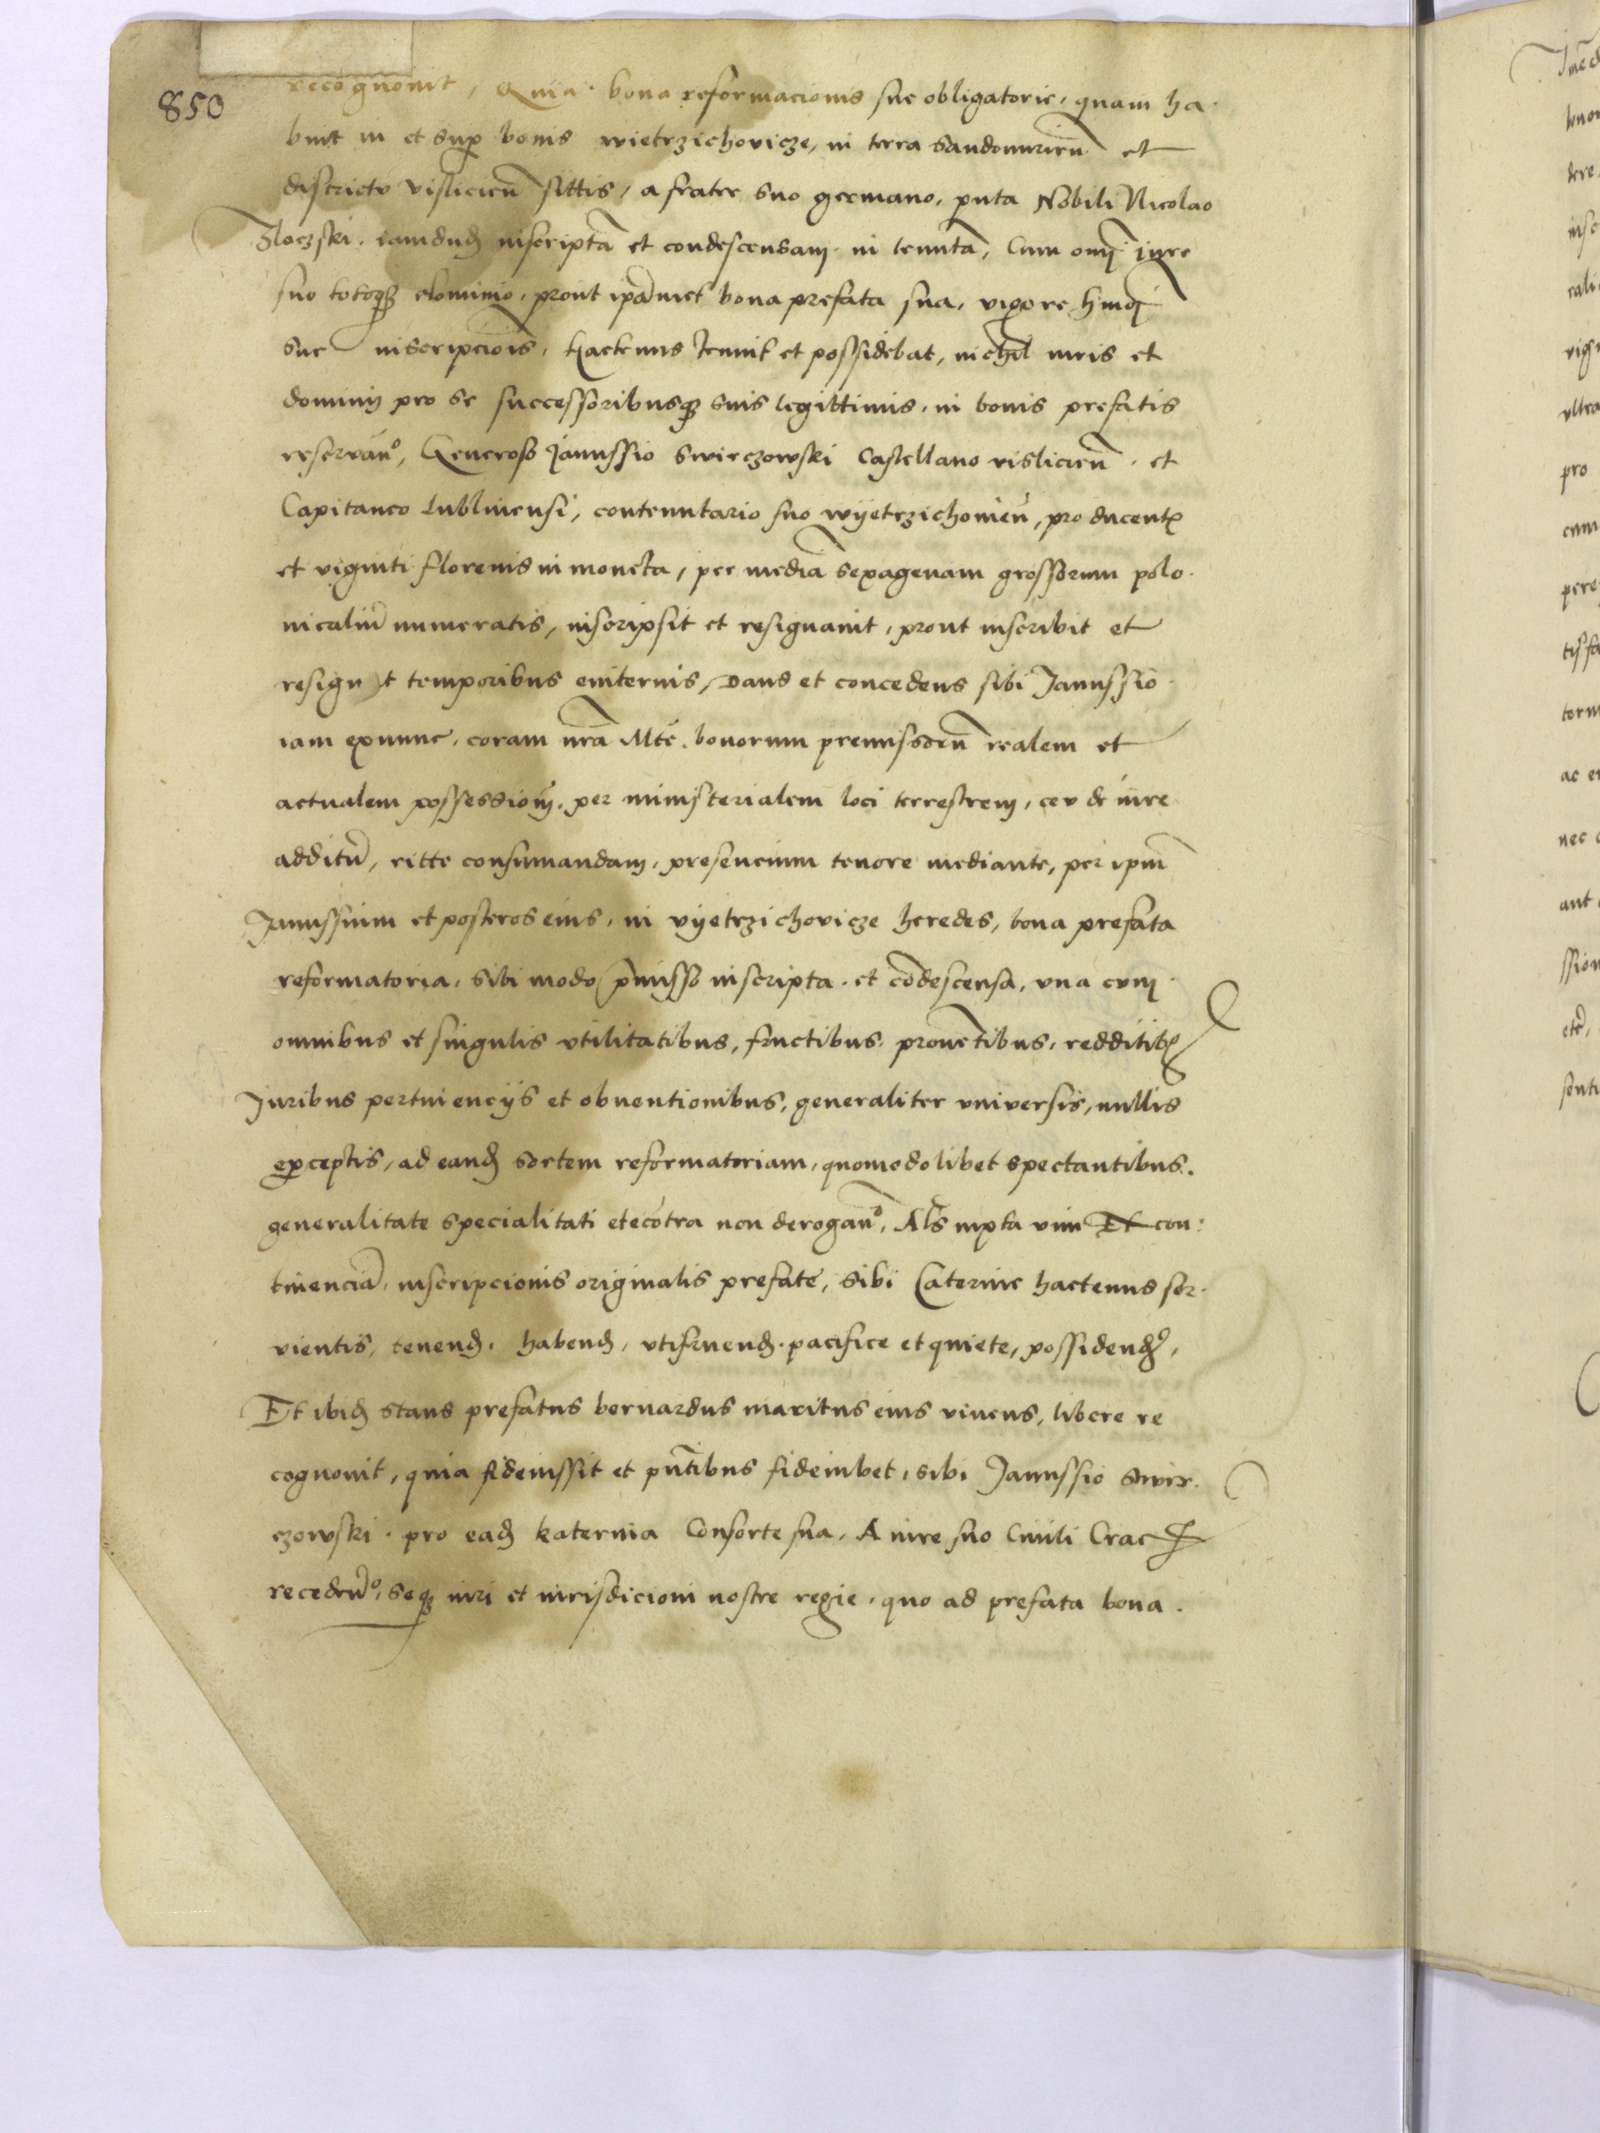 850
recognovit, Quia bona reformacionis sue obligatorie, quam ha-
buit in et sup bonis wietrzichovicze, in terra Sandomirien et
districtu vislicien sittis, a fratre suo germano, puta Nobili Nicolao
Zloczski iamdud inscriptã et condescensam in tenutã, Cum omi iure
suo totoq dominio, prout ipamet bona prefata sua, vigore hmoi
sue inscripcionis, hactenus tenuit et possidebat, nichil iuris et
dominij pro se successoribusq suis legittimis, in bonis prefatis
reservan°, Generoso Janussio Swirczowski Castellano vislicien et
Capitaneo Lublinensi, contenutario suo wyetrzichovien, pro ducent
et viginti florenis in moneta, per mediã sexagenam grossorum polo-
nicaliu numeratis, inscripsit et resignavit, prout inscribit et
resignt temporibus eviternis, Dans et concedens sibi Janussio
iam exnunc, coram nrã Mte, bonorum premissorum realem et
actualem possessionem, per ministerialem loci terrestrem, ceu de iure
additu, ritte consumandam, presencium tenore mediante, per ipm
Janussium et posteros eius, in vyetrzichovicze heredes, bona prefata
reformatoria, sibi modo pmisso inscripta et cõdescensa, una cum
omnibus et singulis utilitatibus, fructibus, proventibus, redditib
Juribus pertinencijs et obventionibus, generaliter universis, nullis
exceptis, ad eand sortem reformatoriam, quomodolibet spectantibus.
generalitate specialitati etecõtra non derogan°, Als iuxta vim Et con:
tinenciã, inscripcionis originalis prefate, sibi Caterine hactenus ser-
vientis, tenend, habend, utifruend, pacifice et quiete, possidend,
Et ibid stans prefatus bernardus maritus eius vivens, libere re
cognovit, quia fideiussit et pntibus fideiubet, sibi Janussio Swir-
czowski pro ead katerina Consorte sua, A iure suo Civili Crac
recedend°, seq iuri et iurisdicioni nostre regie, quo ad prefata bona.